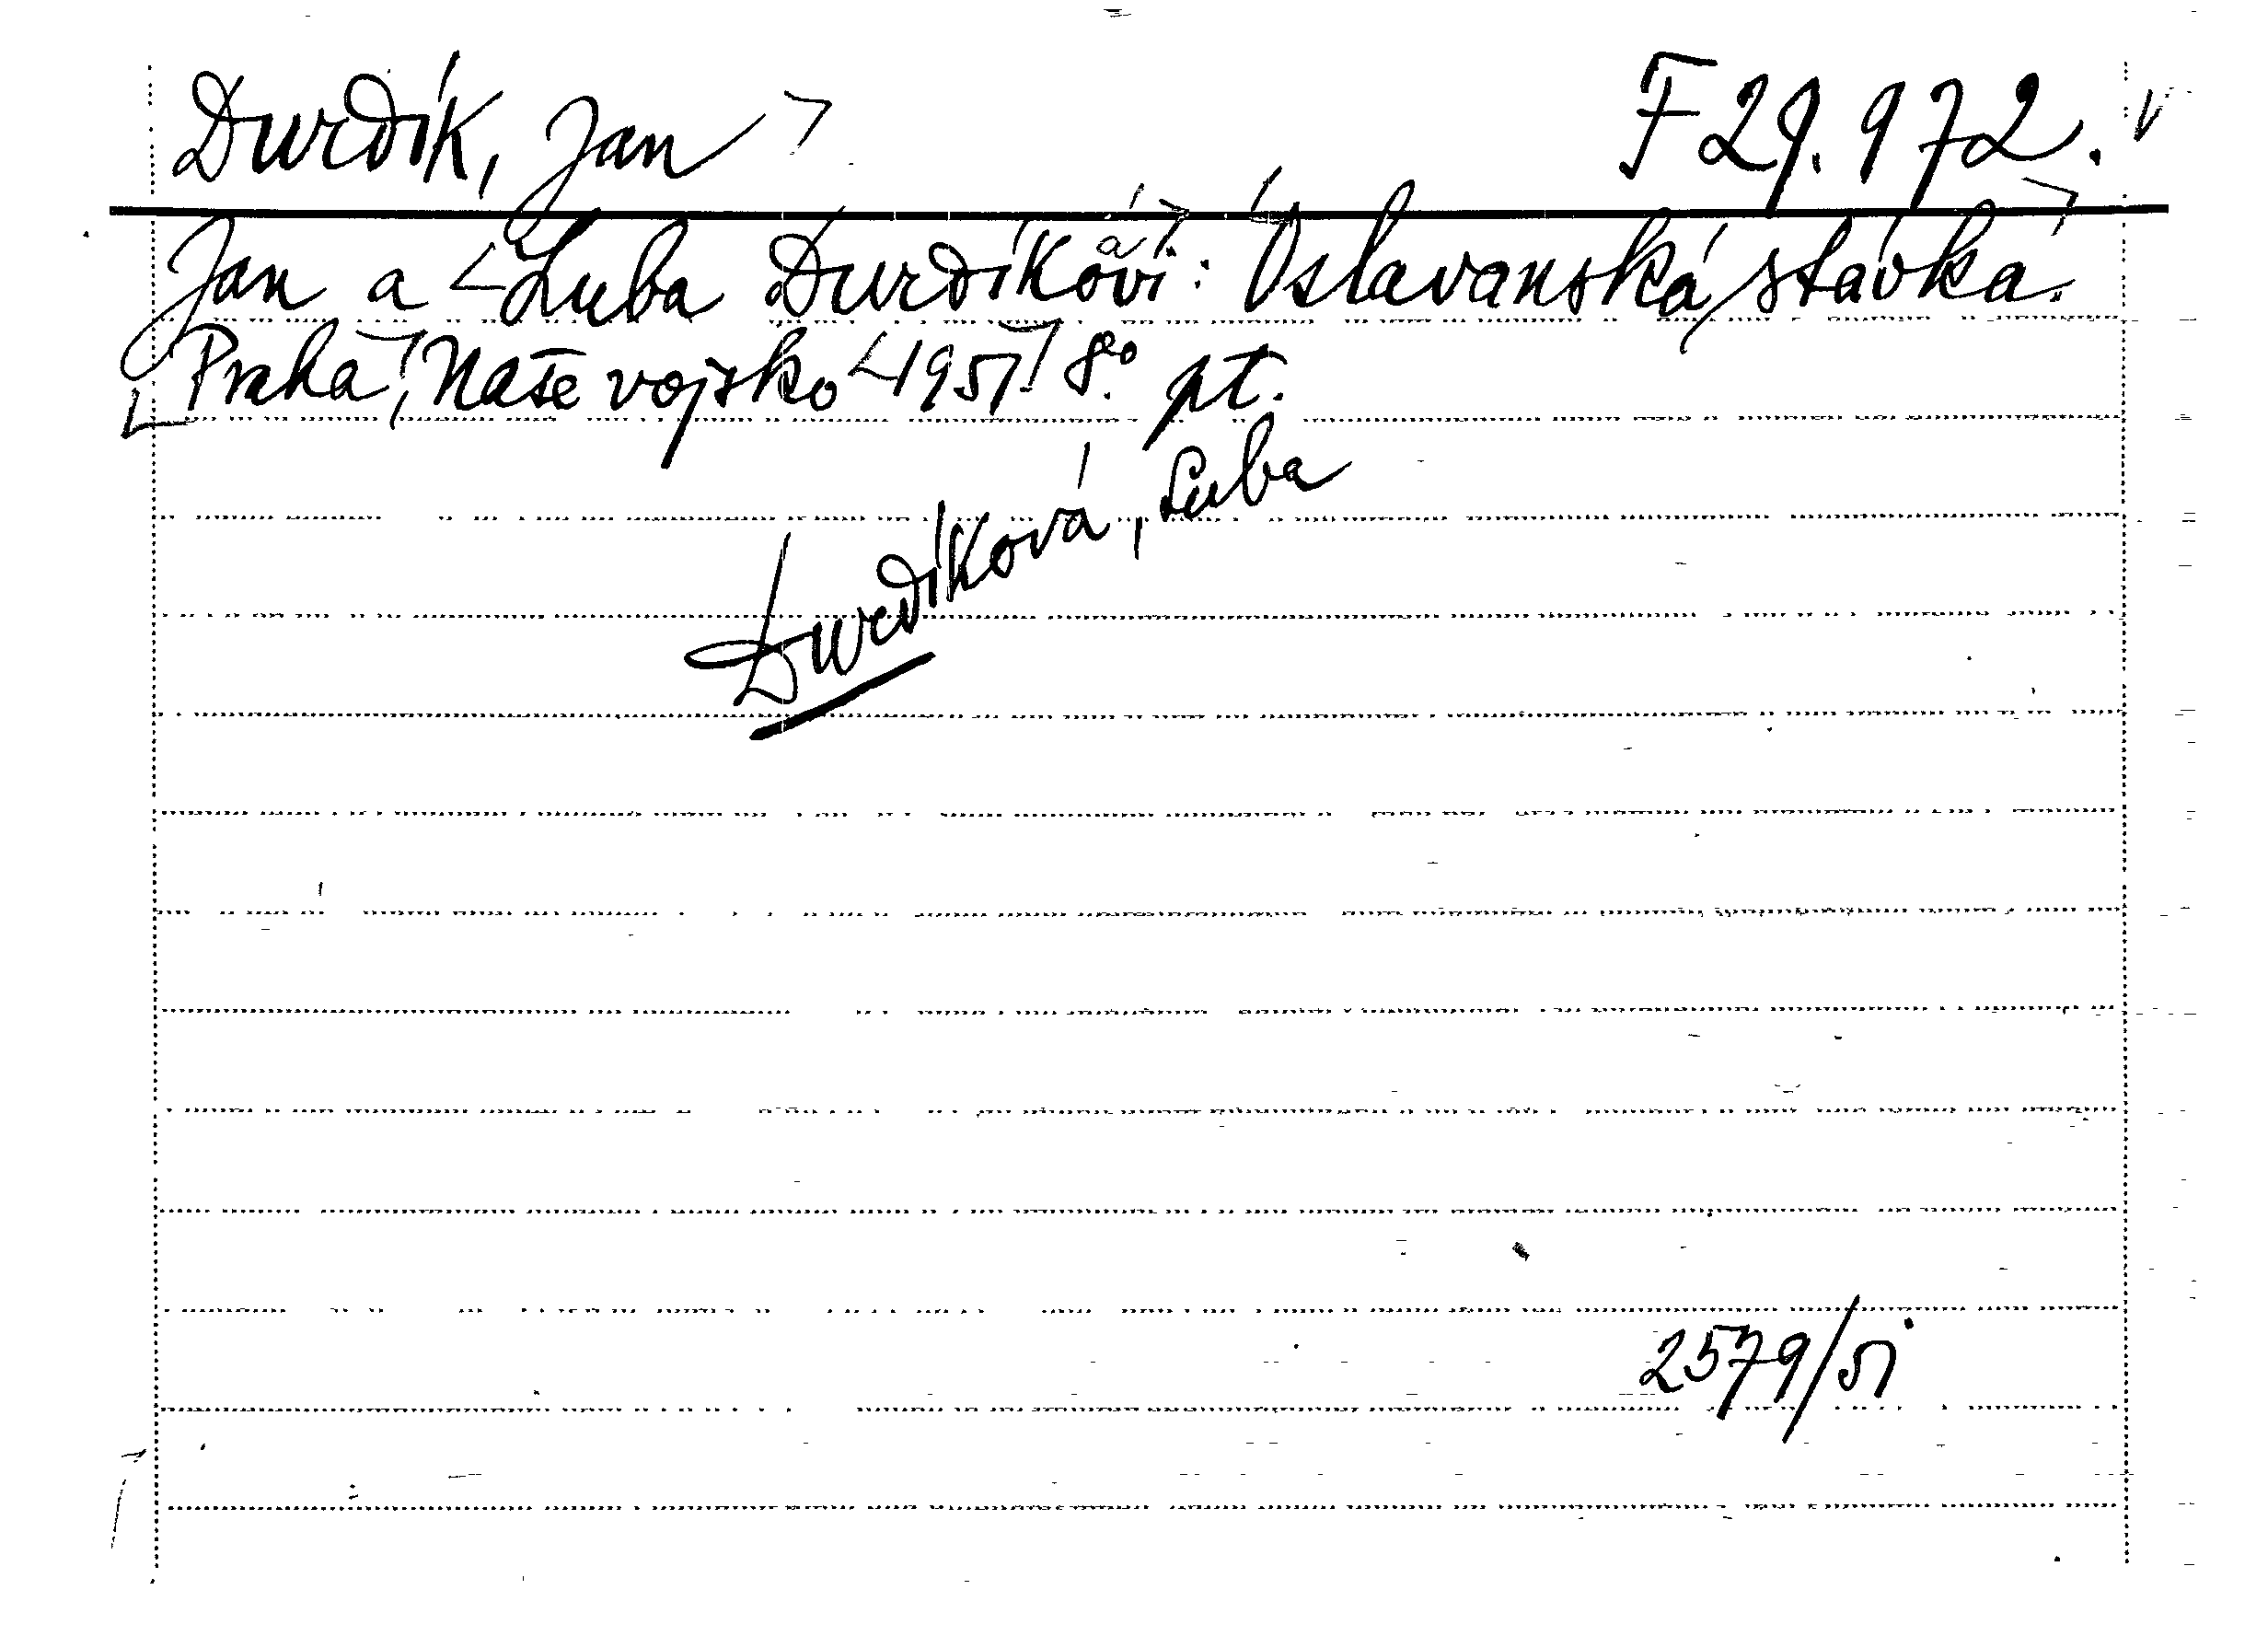 Durdík, Jan
F 29.972.
Jan a Luba Durdíkovi: Oslavanská stávka.
Praha, Naše vojsko 1951 8° pt.
Durdíková, Luba
2579/51